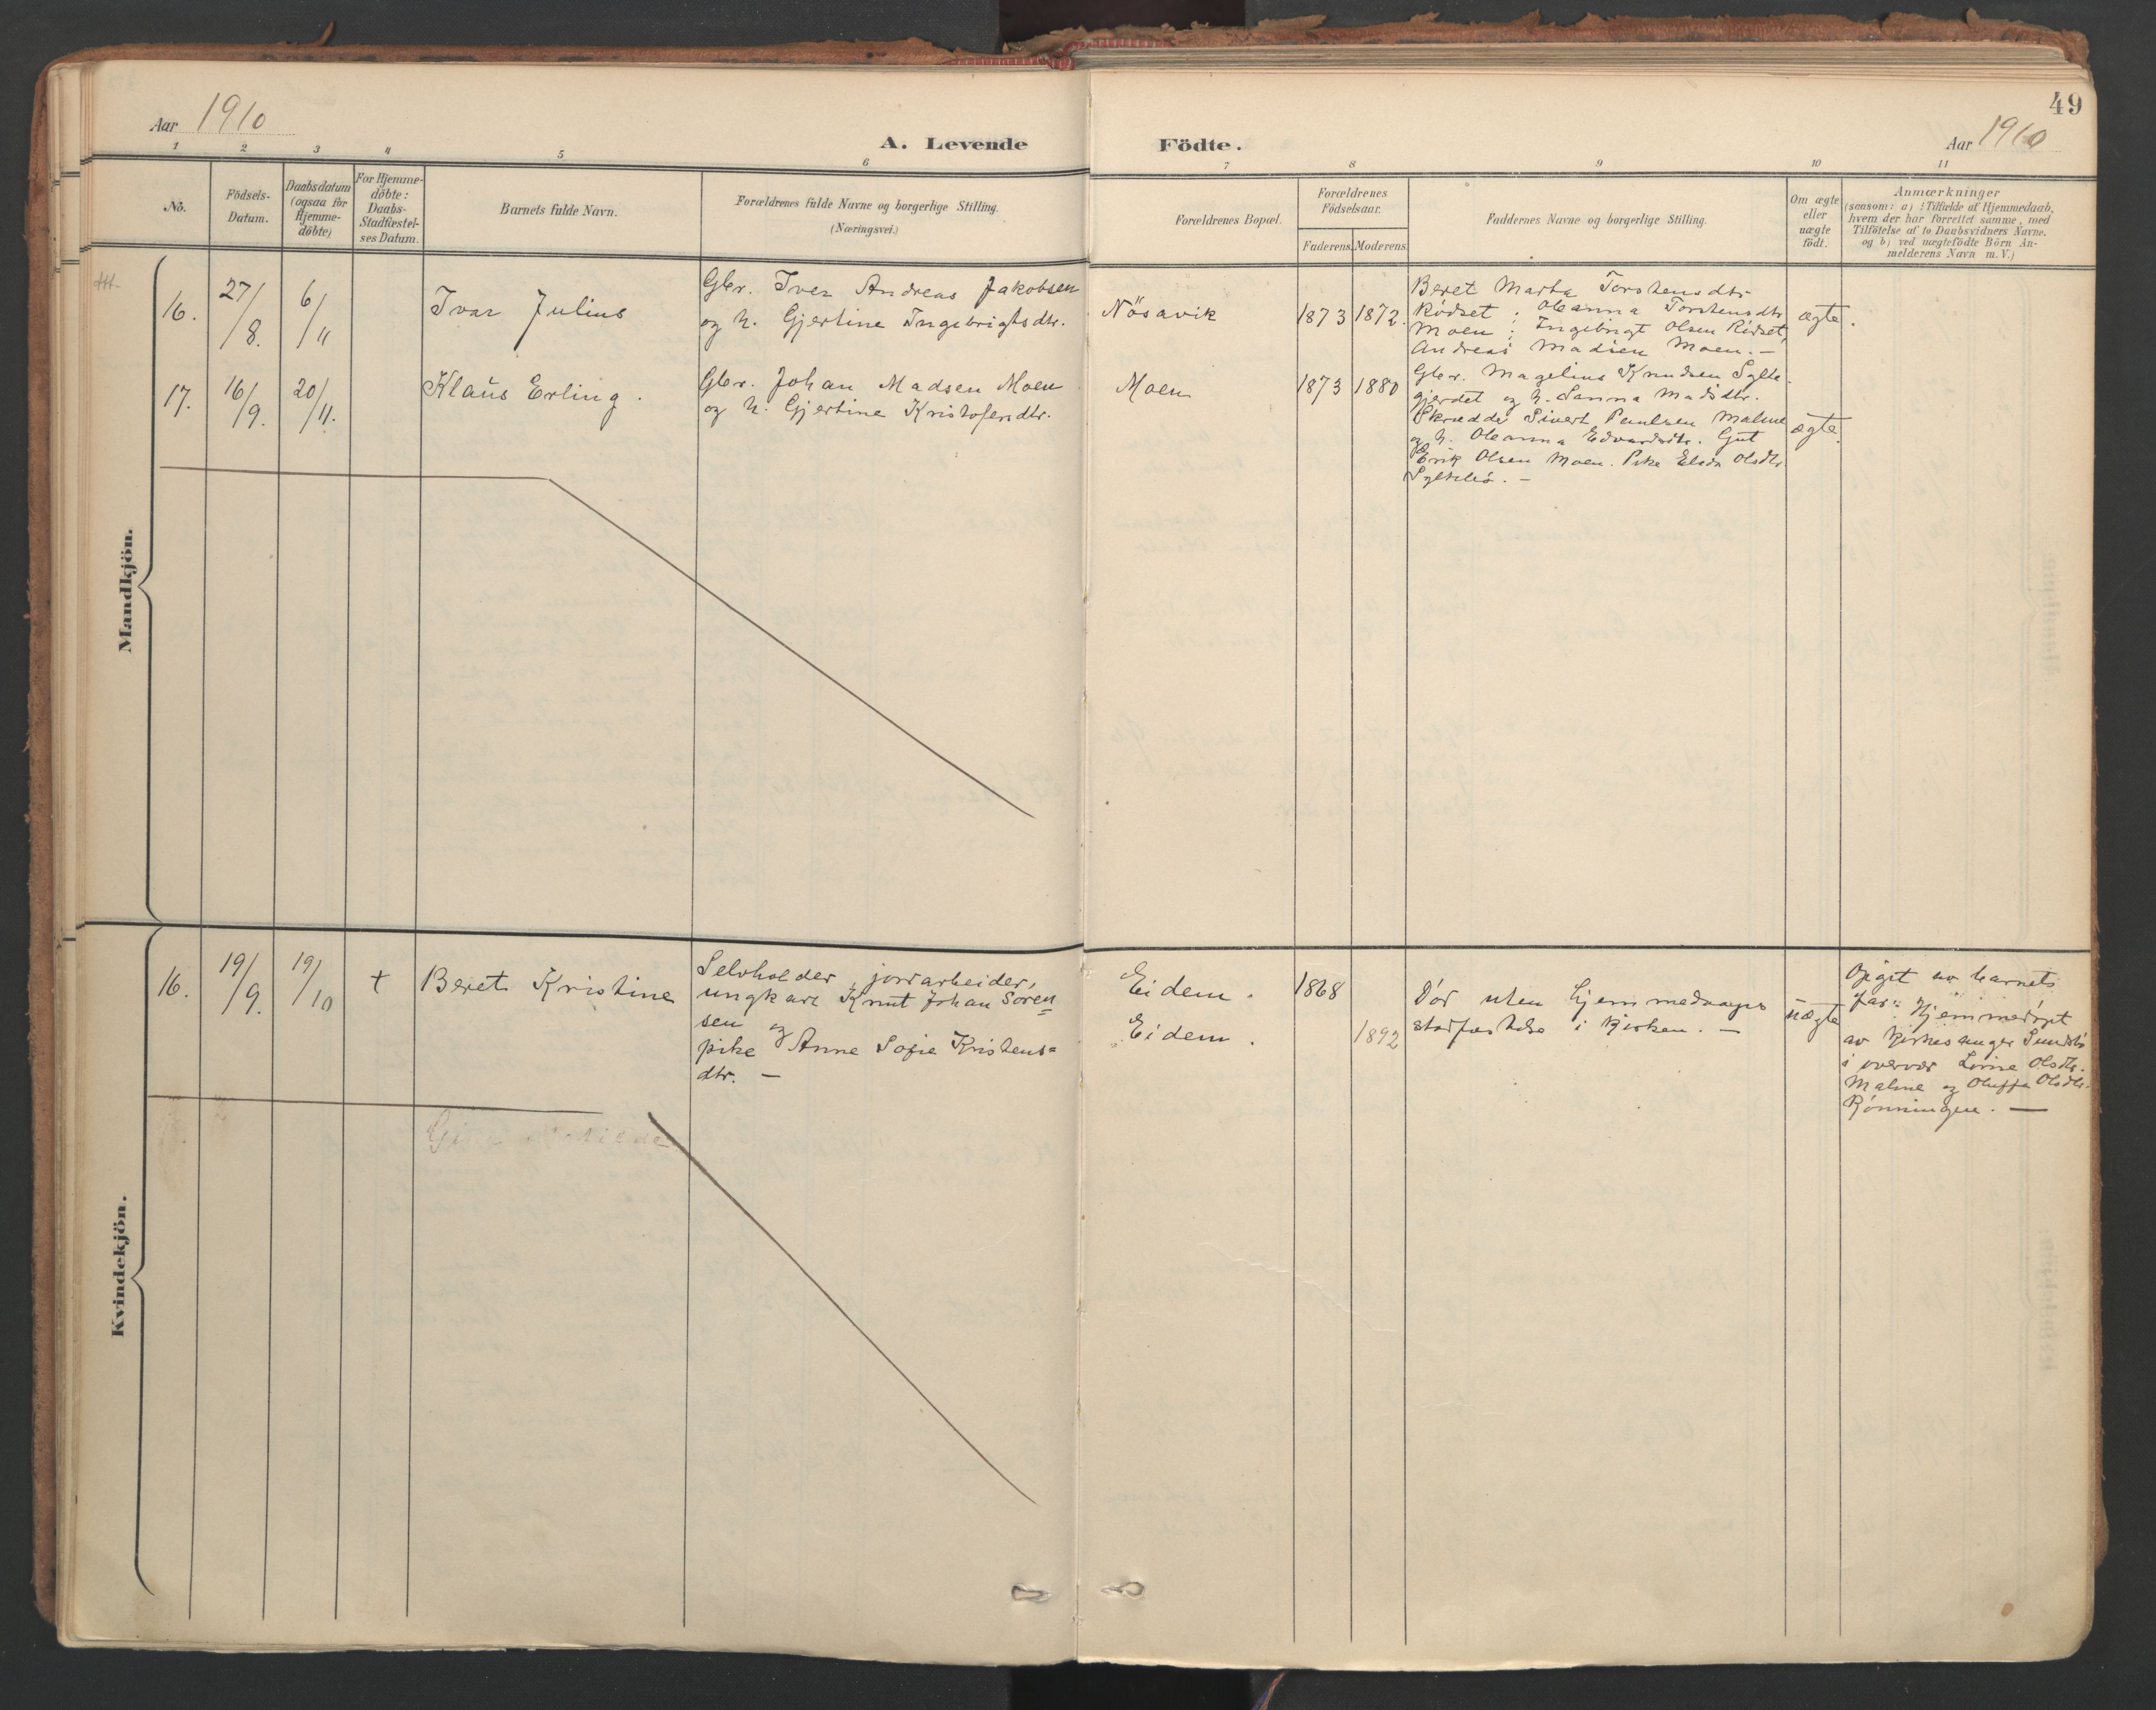 49
Aar 1910
A. Levende Födte.
Aar 1910
1 2 3 4 5 6 7 8 9 10 11
No.
Födsels-
Datum.
Daabsdatum
(ogsaa for
Hjemme-
döbte)
For Hjemme-
döbte:
Daabs-
Stadfæstel-
ses Datum.
Barnets fulde Navn.
Forældrenes fulde Navne og borgerlige Stilling.
(Næringsvei.)
Forældrenes Bopæl.
Forældrenes
Födselsaar.
Faderens. Moderens.
Faddernes Navne og borgerlige Stilling.
Om ægte
eller
uægte
födt.
Anmærkninger
(saasom: a) i Tilfælde af Hjemmedaab,
hvem der har forrettet samme, med
Tilföielse af to Daabsvidners Navne.
og b) ved uægtefödte Börn An-
melderens Navn m. V.)
Mandkjön.
16.
27/8.
6/11
Ivar Julius
Gbr. Iver Andreas Jakobsen
og h. Gjertine Ingebrigtsdtr.
Nösavik
1873
1872.
Beret Marta Torstensdtr
Rödset; Oleanna Torstensdtr
Moen; Ingebrigt Olsen Rödset,
Andreas Madsen Moen. —
ægte.
17.
16/9.
20/11.
Klaus Erling.
Gbr. Johan Madsen Moen
og h. Gjertine Kristofersdtr.
Moen
1873
1880
Gbr. Magelius Knudsen Sylte-
gjerdet og h. Sanna Madsdtr.
Skrædder Sivert Paulsen Malme
og h. Oleanna Edvardsdtr. Gut
Erik Olsen Moen. Pike Olsdtr
ægte.
Kvindekjön.
16.
19/9.
19/10
†
Beret Kristine
Selvholder, jordarbeider,
ungkarl Knut Johan Soren=
sen og
pike Anne Sofie Kristens=
dtr. —
Eidem.
Eidem.
1868
1892
Död uten hjemmedaaps
stadfæstelse i kirken. —
uægte
Opgit av barnets
far: Hjemmedöpt
av kirkesanger
i overvær Line Olsdtr.
Malme og Oluffa Olsdtr.
Rönningen. —